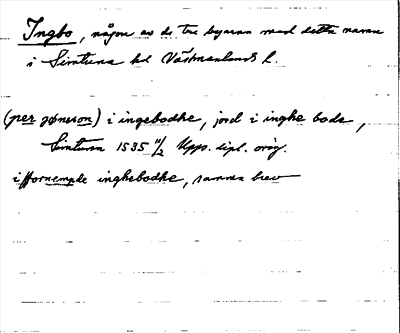 Ingbo, någon av de tre byarna med detta namn
i Simtuna hd Västmanlands l.
(per jönsson) i ingebodhe, jord i inghe bode,
Simtuna 1535 11/2 Upps. dipl. orig.
i ffornempde inghebodhe, samma brev